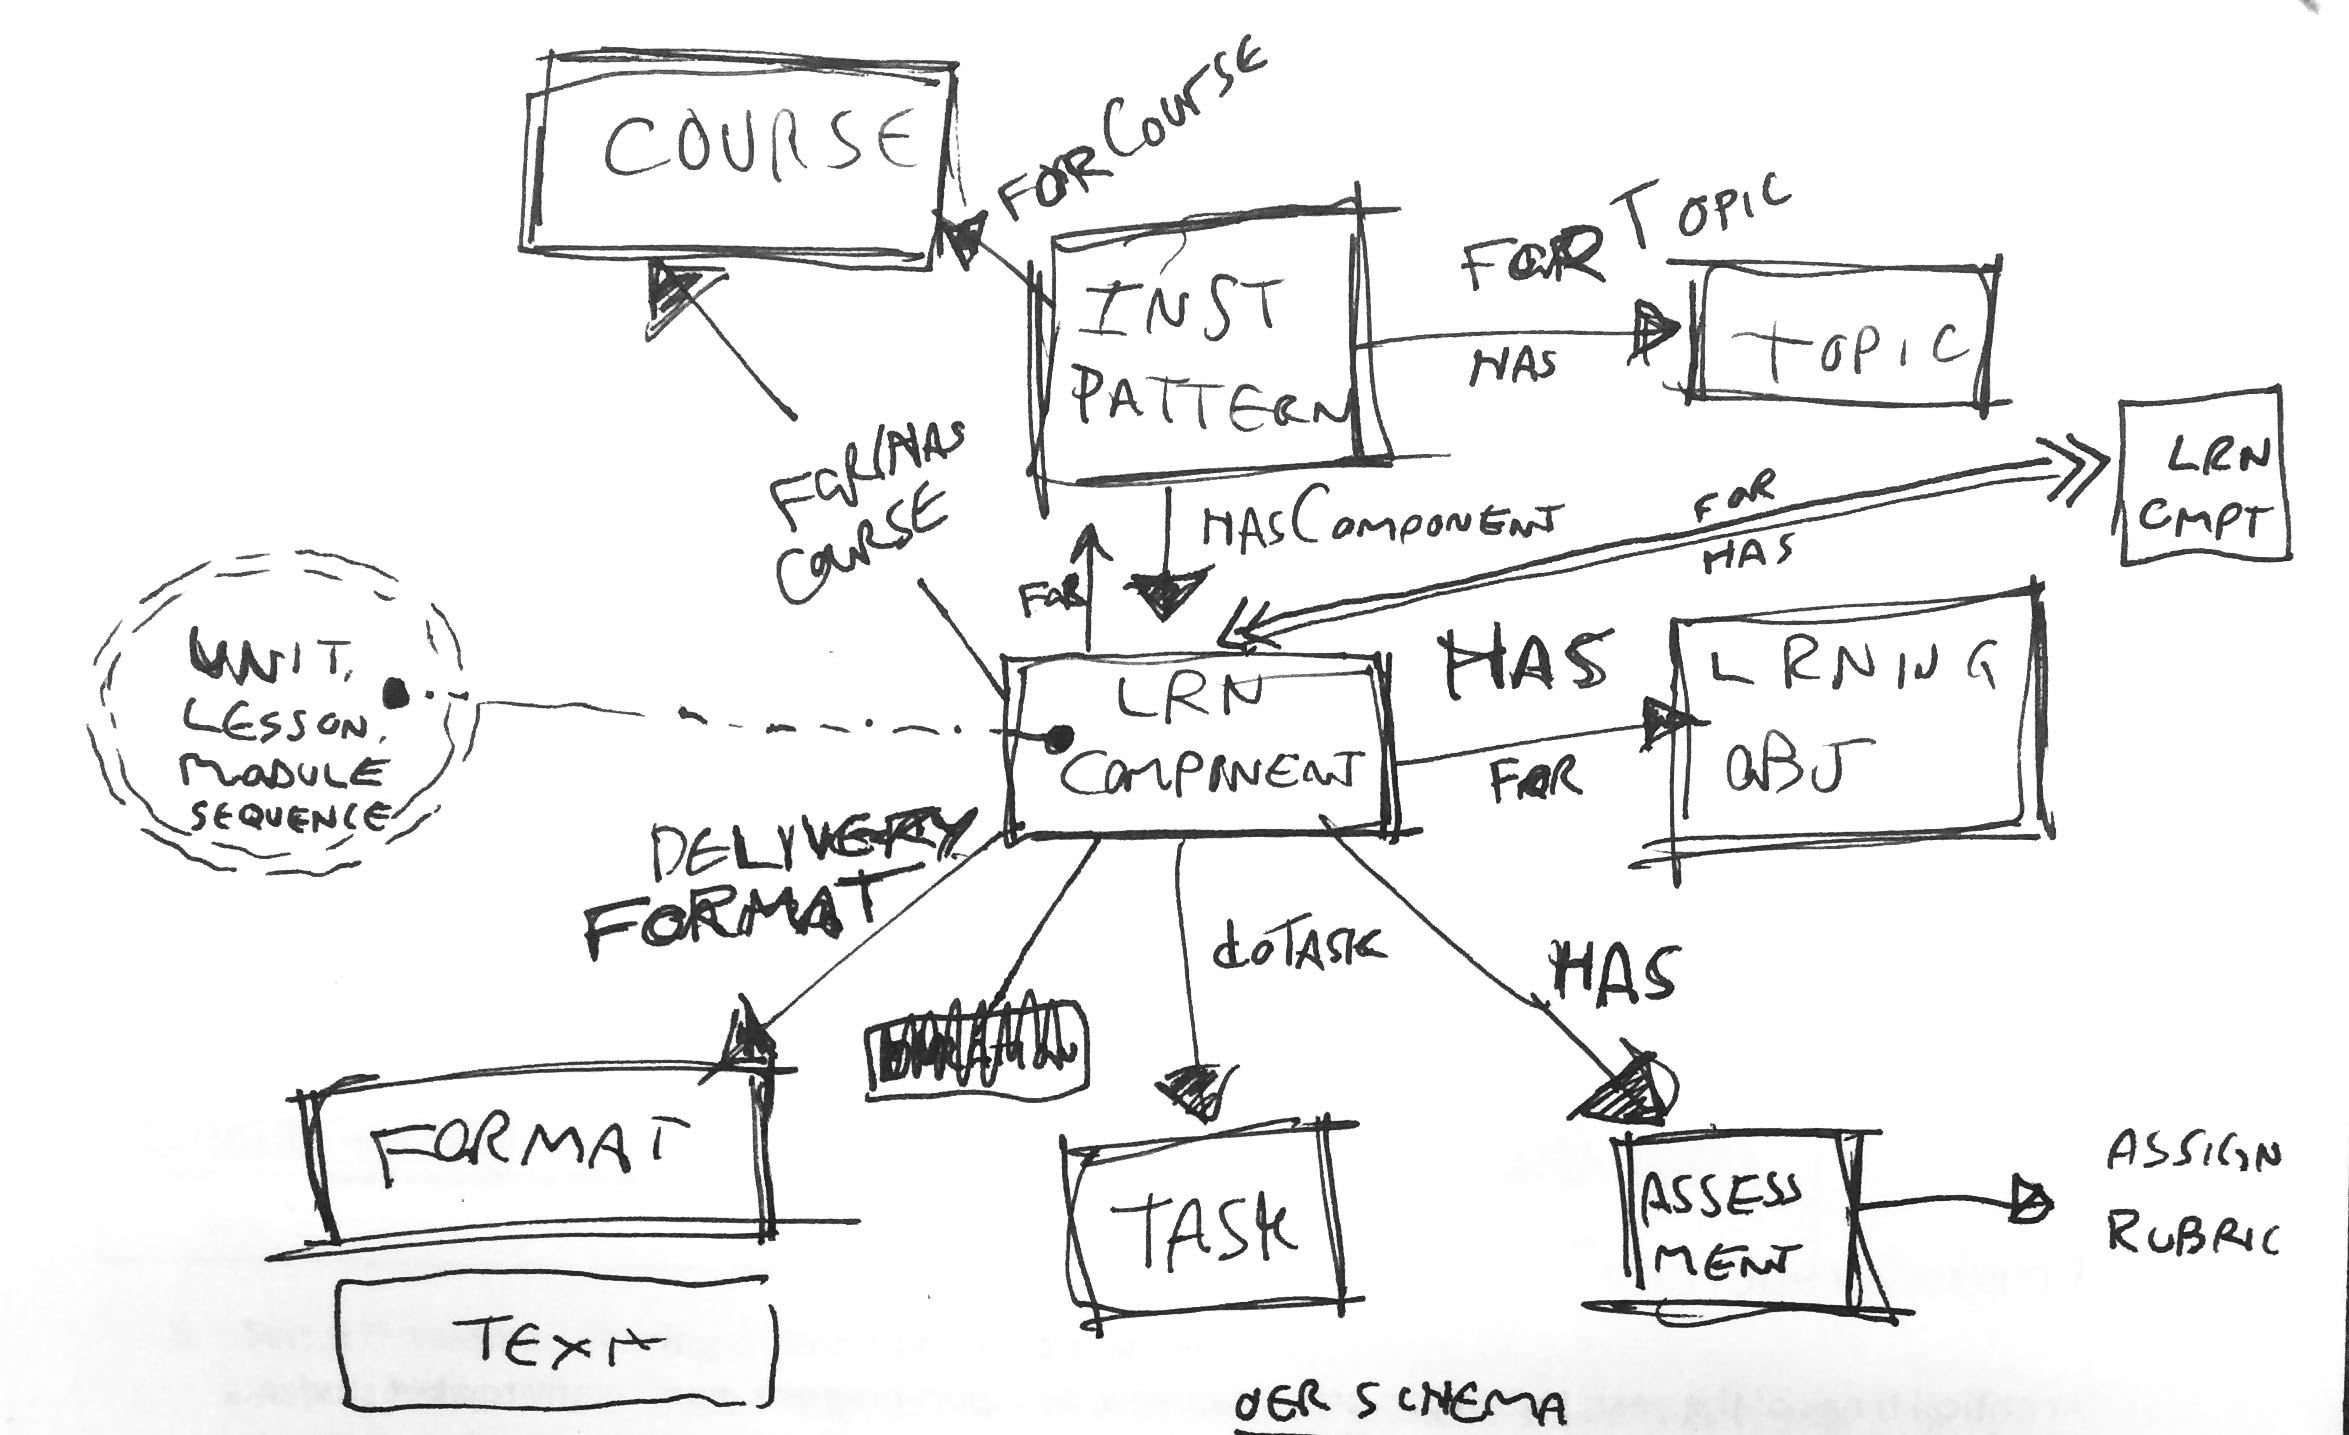 COURSE
FORCOURSE
INST
PATTERN
FOR TOPIC
HAS
TOPIC
LRN
CMPT
FOR/HAS
COURSE
HASCOMPONENT
FOR
HAS
FOR
UNIT,
LESSON,
MODULE
SEQUENCE
LRN
COMPONENT
HAS
FOR
LRNING
OBJ
DELIVERY
FORMAT
doTASK
HAS
FORMAT
TEXT
TASK
ASSESS
MENT
ASSIGN
RUBRIC
OER SCHEMA